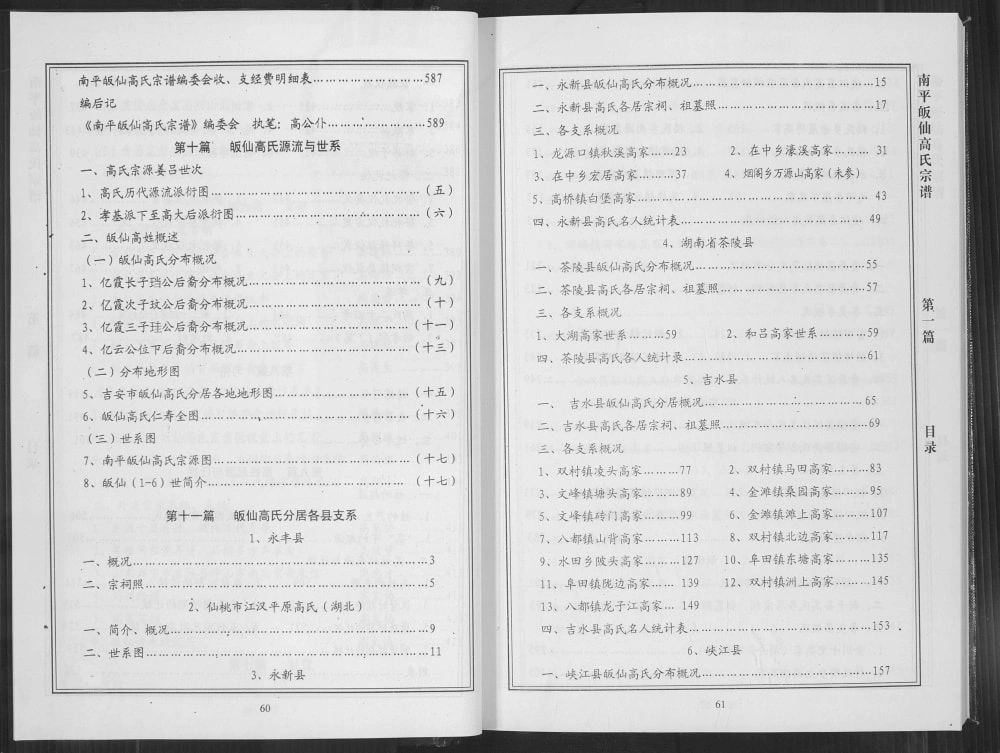 南平皈仙高氏宗谱编委会收、支经费明细表……………………587
编后记
《南平皈仙高氏宗谱》编委会　执笔：高公仆……………………589
第十篇　皈仙高氏源流与世系
一、高氏宗源姜吕世次
1、高氏历代源流派衍图……………………（五）
2、孝基派下至高大后派衍图……………………（六）
二、皈仙高姓概述
（一）皈仙高氏分布概况
1、亿霞长子珰公后裔分布概况……………………（九）
2、亿霞次子玟公后裔分布概况……………………（十）
3、亿霞三子珪公后裔分布概况……………………（十一）
4、亿云公位下后裔分布概况……………………（十三）
（二）分布地形图
5、吉安市皈仙高氏分居各地地形图……………………（十五）
6、皈仙高氏仁寿全图……………………（十六）
（三）世系图
7、南平皈仙高氏宗源图……………………（十七）
8、皈仙（1-6）世简介……………………（十七）
第十一篇　皈仙高氏分居各县支系
1、永丰县
一、概况……………………3
二、宗祠照……………………5
2、仙桃市江汉平原高氏（湖北）
一、简介、概况……………………9
二、世系图……………………11
3、永新县
60
一、永新县皈仙高氏分布概况……………………15
二、永新县高氏各居宗祠、祖墓照……………………17
三、各支系概况
1、龙源口镇秋溪高家……23　2、在中乡濠溪高家……31
3、在中乡宏居高家……37　4、烟阁乡万源山高家（未参）
5、高桥镇白堡高家……………………43
四、永新县高氏名人统计表……………………49
4、湖南省茶陵县
一、茶陵县皈仙高氏分布概况……………………55
二、茶陵县高氏各居宗祠、祖墓照……………………57
三、各支系概况
1、大湖高家世系……59　2、和吕高家世系……59
四、茶陵县高氏各人统计录……………………61
5、吉水县
一、　吉水县皈仙高氏分居概况……………………65
二、吉水县高氏各居宗祠、祖墓照……………………69
三、各支系概况
1、双村镇凌头高家……77　2、双村镇马田高家……83
3、文峰镇塘头高家……89　4、金滩镇桑园高家……95
5、文峰镇砖门高家……99　6、金滩镇滩上高家……107
7、八都镇山背高家……113　8、双村镇北边高家……117
9、水田乡陂头高家……127　10、阜田镇东塘高家……135
11、阜田镇陇边高家……139　12、双村镇洲上高家……145
13、八都镇龙子江高家…149
四、吉水县高氏名人统计表……………………153
6、峡江县
一、峡江县皈仙高氏分布概况……………………157
61
南平皈仙高氏宗谱
第一篇
目录